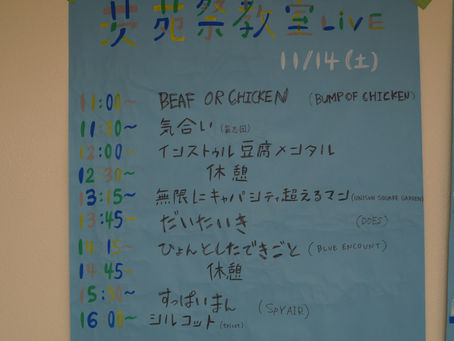 茨苑祭教室LiVE
11/14(土)
11:00〜 BEAF OR CHICKEN (BUMP OF CHICKEN)
11:30〜 気合い
12:00〜 インストゥル豆腐メンタル
12:30〜 休憩
13:15〜 無限にキャパシティ超えるマン (UNISON SQUARE GARDEN)
13:45〜 だいたいき (DOES)
14:15〜 ひょんとしたできごと (BLUE ENCOUNT)
14:45〜 休憩
15:30〜 すっぱいまん (SPYAIR)
16:00〜 シルコット